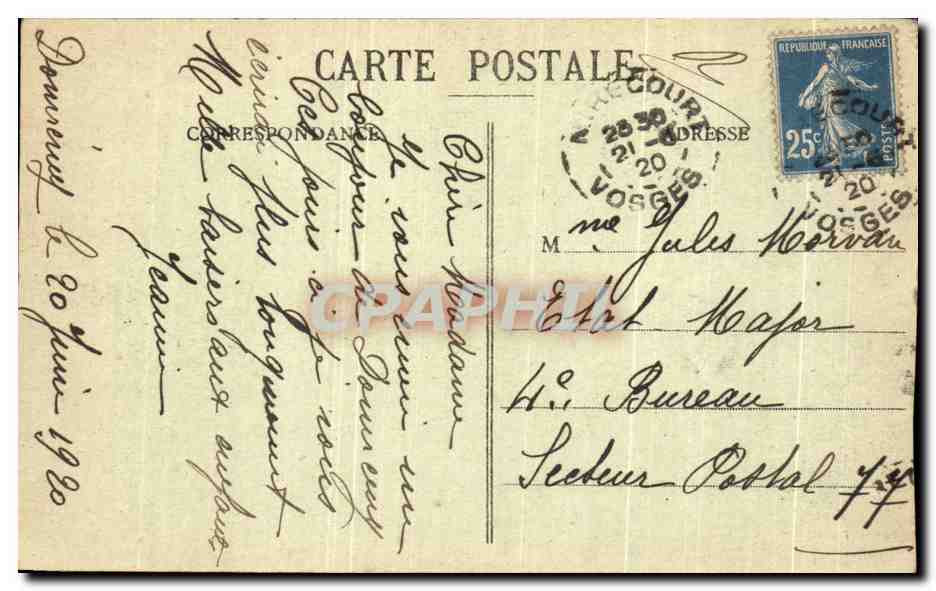 CARTE POSTALE
CORRESPONDANCE
ADRESSE
REPUBLIQUE FRANÇAISE
25c
POSTES
MIRECOURT
VOSGES
20
Domremy le 20 Juin 1920
Chère Madame
Je vous envoie un
bonjour de Domremy
Ces jours ci je vous
écrirai plus longuement
Mille baisers aux enfants
Jeanne
Mme Jules Morvan
Etat Major
4e Bureau
Secteur Postal 77
CPAPHIL